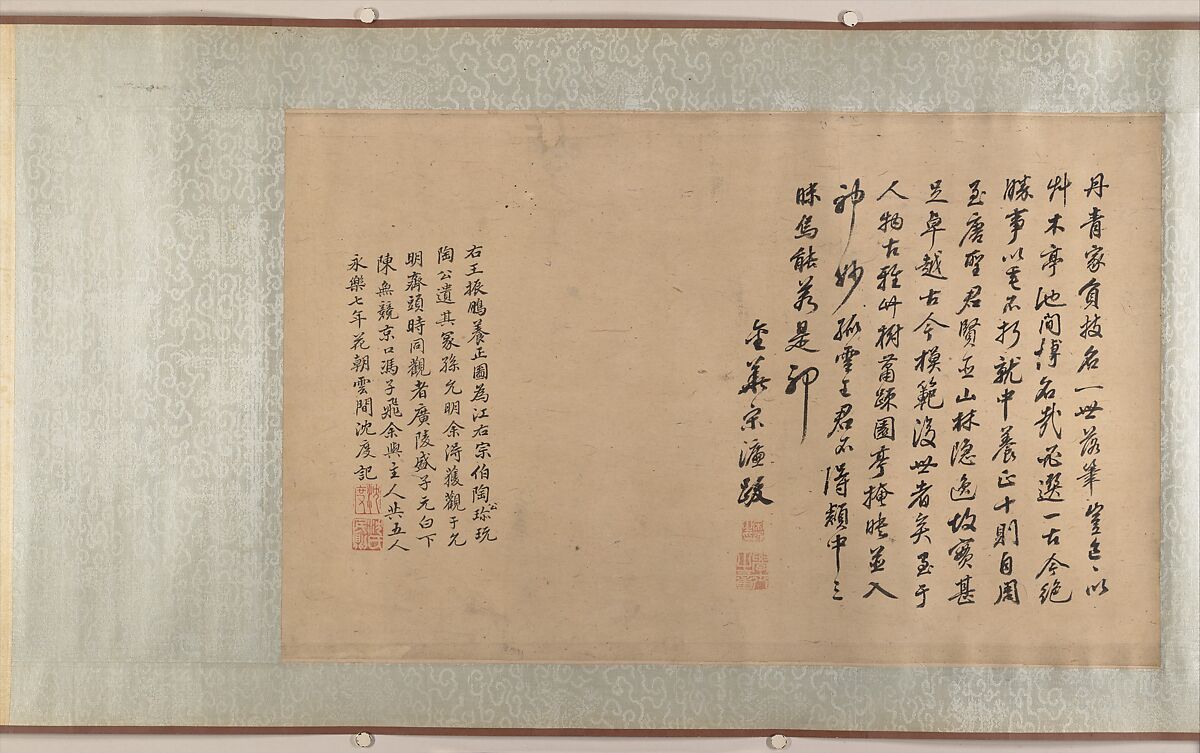 丹青家負技名一世落筆豈區々以
艸木亭池間博名哉飛選一古今絕
勝事以毫不朽就中養正十則自周
至唐聖君賢臣山林隱逸故實甚
足卓越古今模範後世者矣至于
人物古雅艸樹蕭疎園亭掩映並入
神妙孤雲王君不得類中三
昧焉能若是耶
金華宋濂跋
右王振鵬養正圖為江右宗伯陶公珎玩
陶公遺其冢孫允明余淂獲觀于允
明齋頭時同觀者廣陵盛子元白下
陳無競京口馮子飛余與主人共五人
永樂七年花朝雲間沈度記